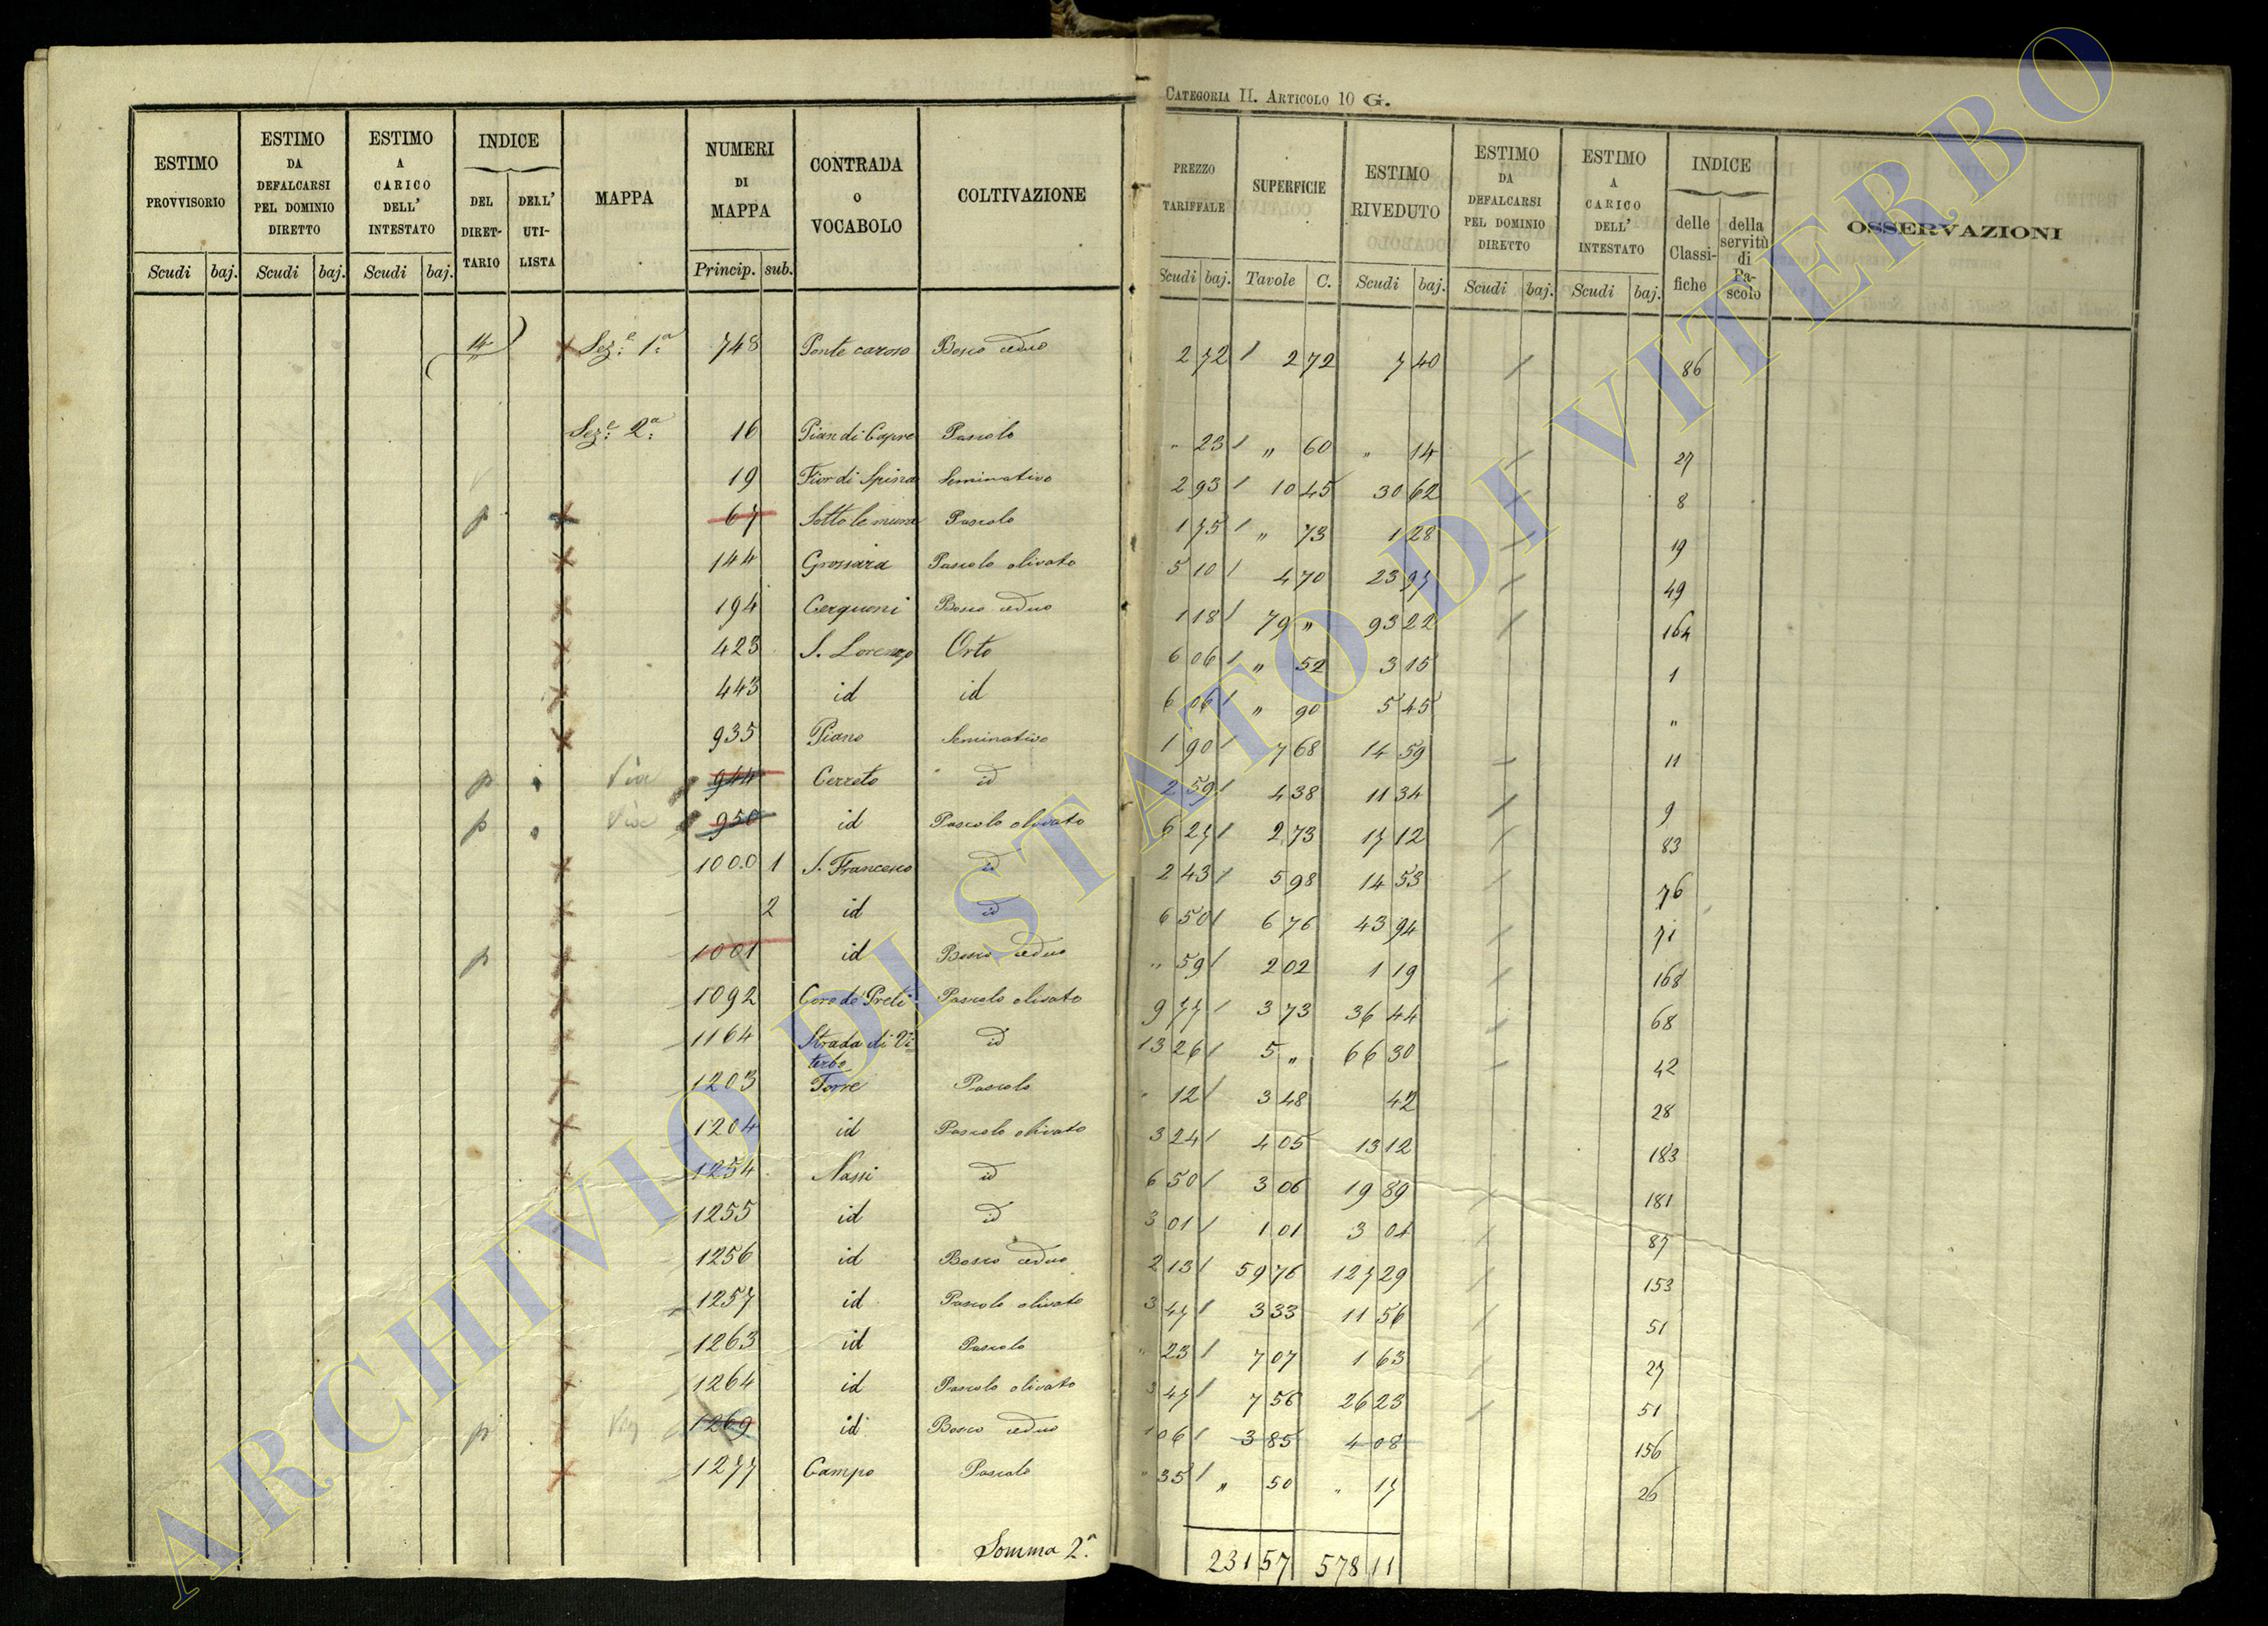 CATEGORIA II. ARTICOLO 10 G.
ESTIMO PROVVISORIO | ESTIMO DA DEFALCARSI PEL DOMINIO DIRETTO | ESTIMO A CARICO DELL' INTESTATO | INDICE DEL DIRETTARIO | DELL' UTILISTA | MAPPA | NUMERI DI MAPPA | CONTRADA o VOCABOLO | COLTIVAZIONE | PREZZO TARIFFALE | SUPERFICIE | ESTIMO RIVEDUTO | ESTIMO DA DEFALCARSI PEL DOMINIO DIRETTO | ESTIMO A CARICO DELL' INTESTATO | INDICE delle Classifiche | della servitù di Pascolo | OSSERVAZIONI
Scudi | baj. | Scudi | baj. | Scudi | baj. | Princip. | sub. | Scudi | baj. | Tavole | C. | Scudi | baj. | Scudi | baj. | Scudi | baj.
Sez.e 1.a 748 Ponte caroso Bosco ceduo 2 72 / 2 72 7 40 / 86
Sez.e 2.a 16 Pian di Capre Pascolo " 23 / " 60 " 14 / 27
19 Fior di Spina Seminativo 2 93 / 10 45 30 62 / 8
p 67 Sotto le mura Pascolo 1 75 / " 73 1 28 / 19
144 Grossara Pascolo olivato 5 10 / 4 70 23 97 / 49
194 Cerquoni Bosco ceduo 1 18 / 79 " 93 22 / 164
423 S. Lorenzo Orto 6 06 / " 52 3 15 1
443 id id 6 06 / " 90 5 45 "
935 Piano Seminativo 1 90 / 7 68 14 59 / 11
p Via 944 Cerreto id 2 59 / 4 38 11 34 / 9
p 950 id Pascolo olivato 6 27 / 2 73 17 12 / 83
1000 1 S. Francesco id 2 43 / 5 98 14 53 / 76
2 id id 6 50 / 6 76 43 94 / 71
p 1001 id Bosco ceduo " 59 / 2 02 1 19 / 168
1092 Coro de' Preti Pascolo olivato 9 77 / 3 73 36 44 / 68
1164 Strada di Viterbo id 13 26 / 5 " 66 30 / 42
1203 Torre Pascolo " 12 / 3 48 42 28
1204 id Pascolo olivato 3 24 / 4 05 13 12 183
1254 Nassi id 6 50 / 3 06 19 89 / 181
1255 id id 3 01 / 1 01 3 04 / 87
1256 id Bosco ceduo 2 13 / 59 76 127 29 / 153
1257 id Pascolo olivato 3 47 / 3 33 11 56 / 51
1263 id Pascolo " 23 / 7 07 1 63 / 27
1264 id Pascolo olivato 3 47 / 7 56 26 23 / 51
p 1269 id Bosco ceduo 1 06 / 3 85 4 08 156
1277 Campo Pascolo " 35 / " 50 " 17 26
Somma 2.a 231 57 578 11
ARCHIVIO DI STATO DI VITERBO